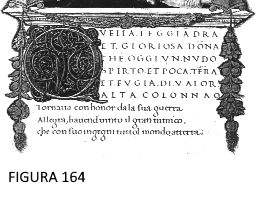 QVELLA LEGGIADRA
ET GLORIOSA DONA
CHE OGGI VN NVDO
SPIRTO ET POCA TERA
ET FV GIA DI VALOR
ALTA COLONNA
Tornava con honor da la sua guerra
Allegra, havendo vinto il gran nimico,
che con suo ingegni tutto l mondo atterra.
FIGURA 164